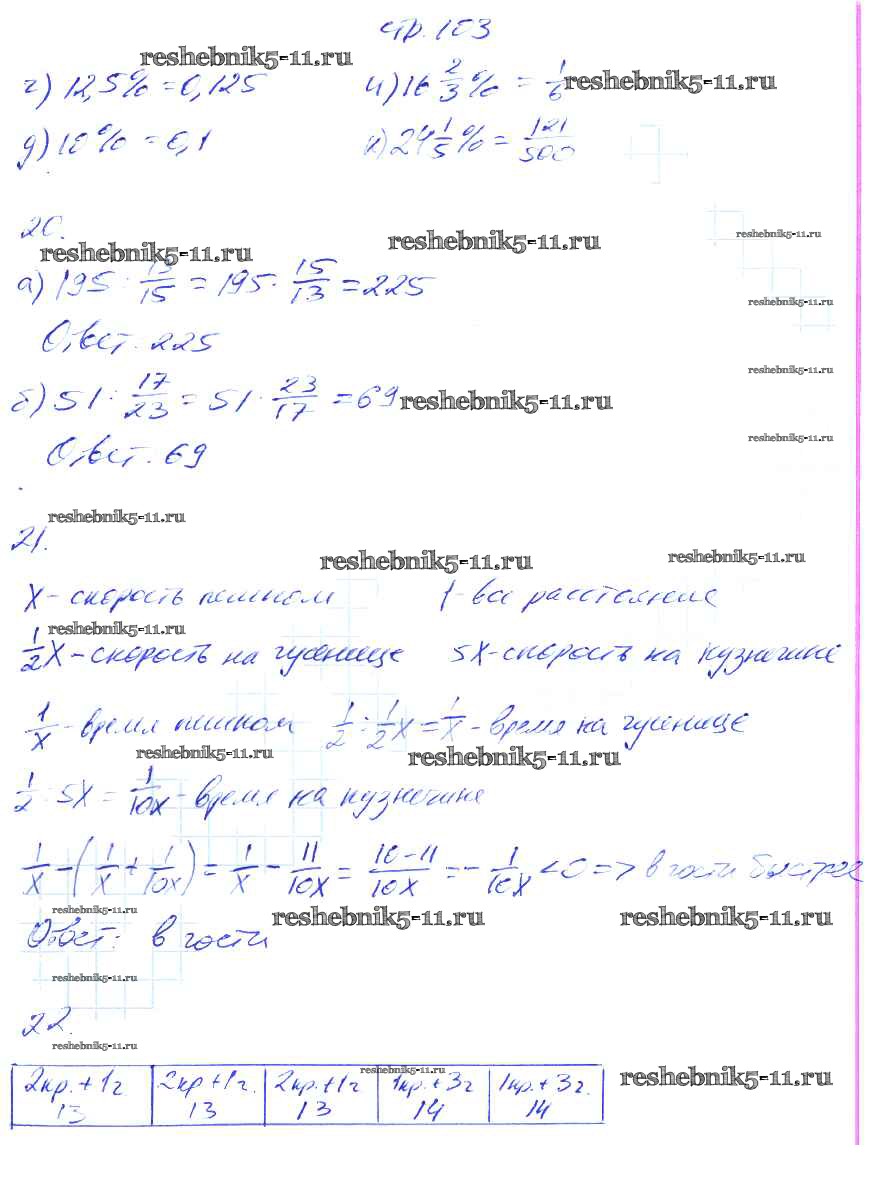 стр. 103
reshebnik5-11.ru
г) 12,5% = 0,125 и) 16 2/3 % = 1/6 reshebnik5-11.ru
д) 10% = 0,1 к) 24 1/5 % = 121/500
20.
reshebnik5-11.ru reshebnik5-11.ru reshebnik5-11.ru
а) 195 : 13/15 = 195 · 15/13 = 225
reshebnik5-11.ru
Ответ. 225
reshebnik5-11.ru
б) 51 : 17/23 = 51 · 23/17 = 69 reshebnik5-11.ru
reshebnik5-11.ru
Ответ. 69
reshebnik5-11.ru
21.
reshebnik5-11.ru reshebnik5-11.ru
x - скорость пешком 1 - все расстояние
reshebnik5-11.ru
1/2 x - скорость на гусенице 5x - скорость на кузнечике
1/x - время пешком 1/2 : 1/2 x = 1/x - время на гусенице
reshebnik5-11.ru reshebnik5-11.ru
1/2 : 5x = 1/10x - время на кузнечике
1/x - (1/x + 1/10x) = 1/x - 11/10x = 10-11/10x = - 1/10x < 0 => в гости быстрее
reshebnik5-11.ru reshebnik5-11.ru reshebnik5-11.ru
Ответ: в гости
reshebnik5-11.ru
22.
reshebnik5-11.ru
reshebnik5-11.ru reshebnik5-11.ru
2кр. + 1г 2кр + 1г. 2кр. + 1г 1кр. + 3г 1кр. + 3г.
13 13 13 14 14